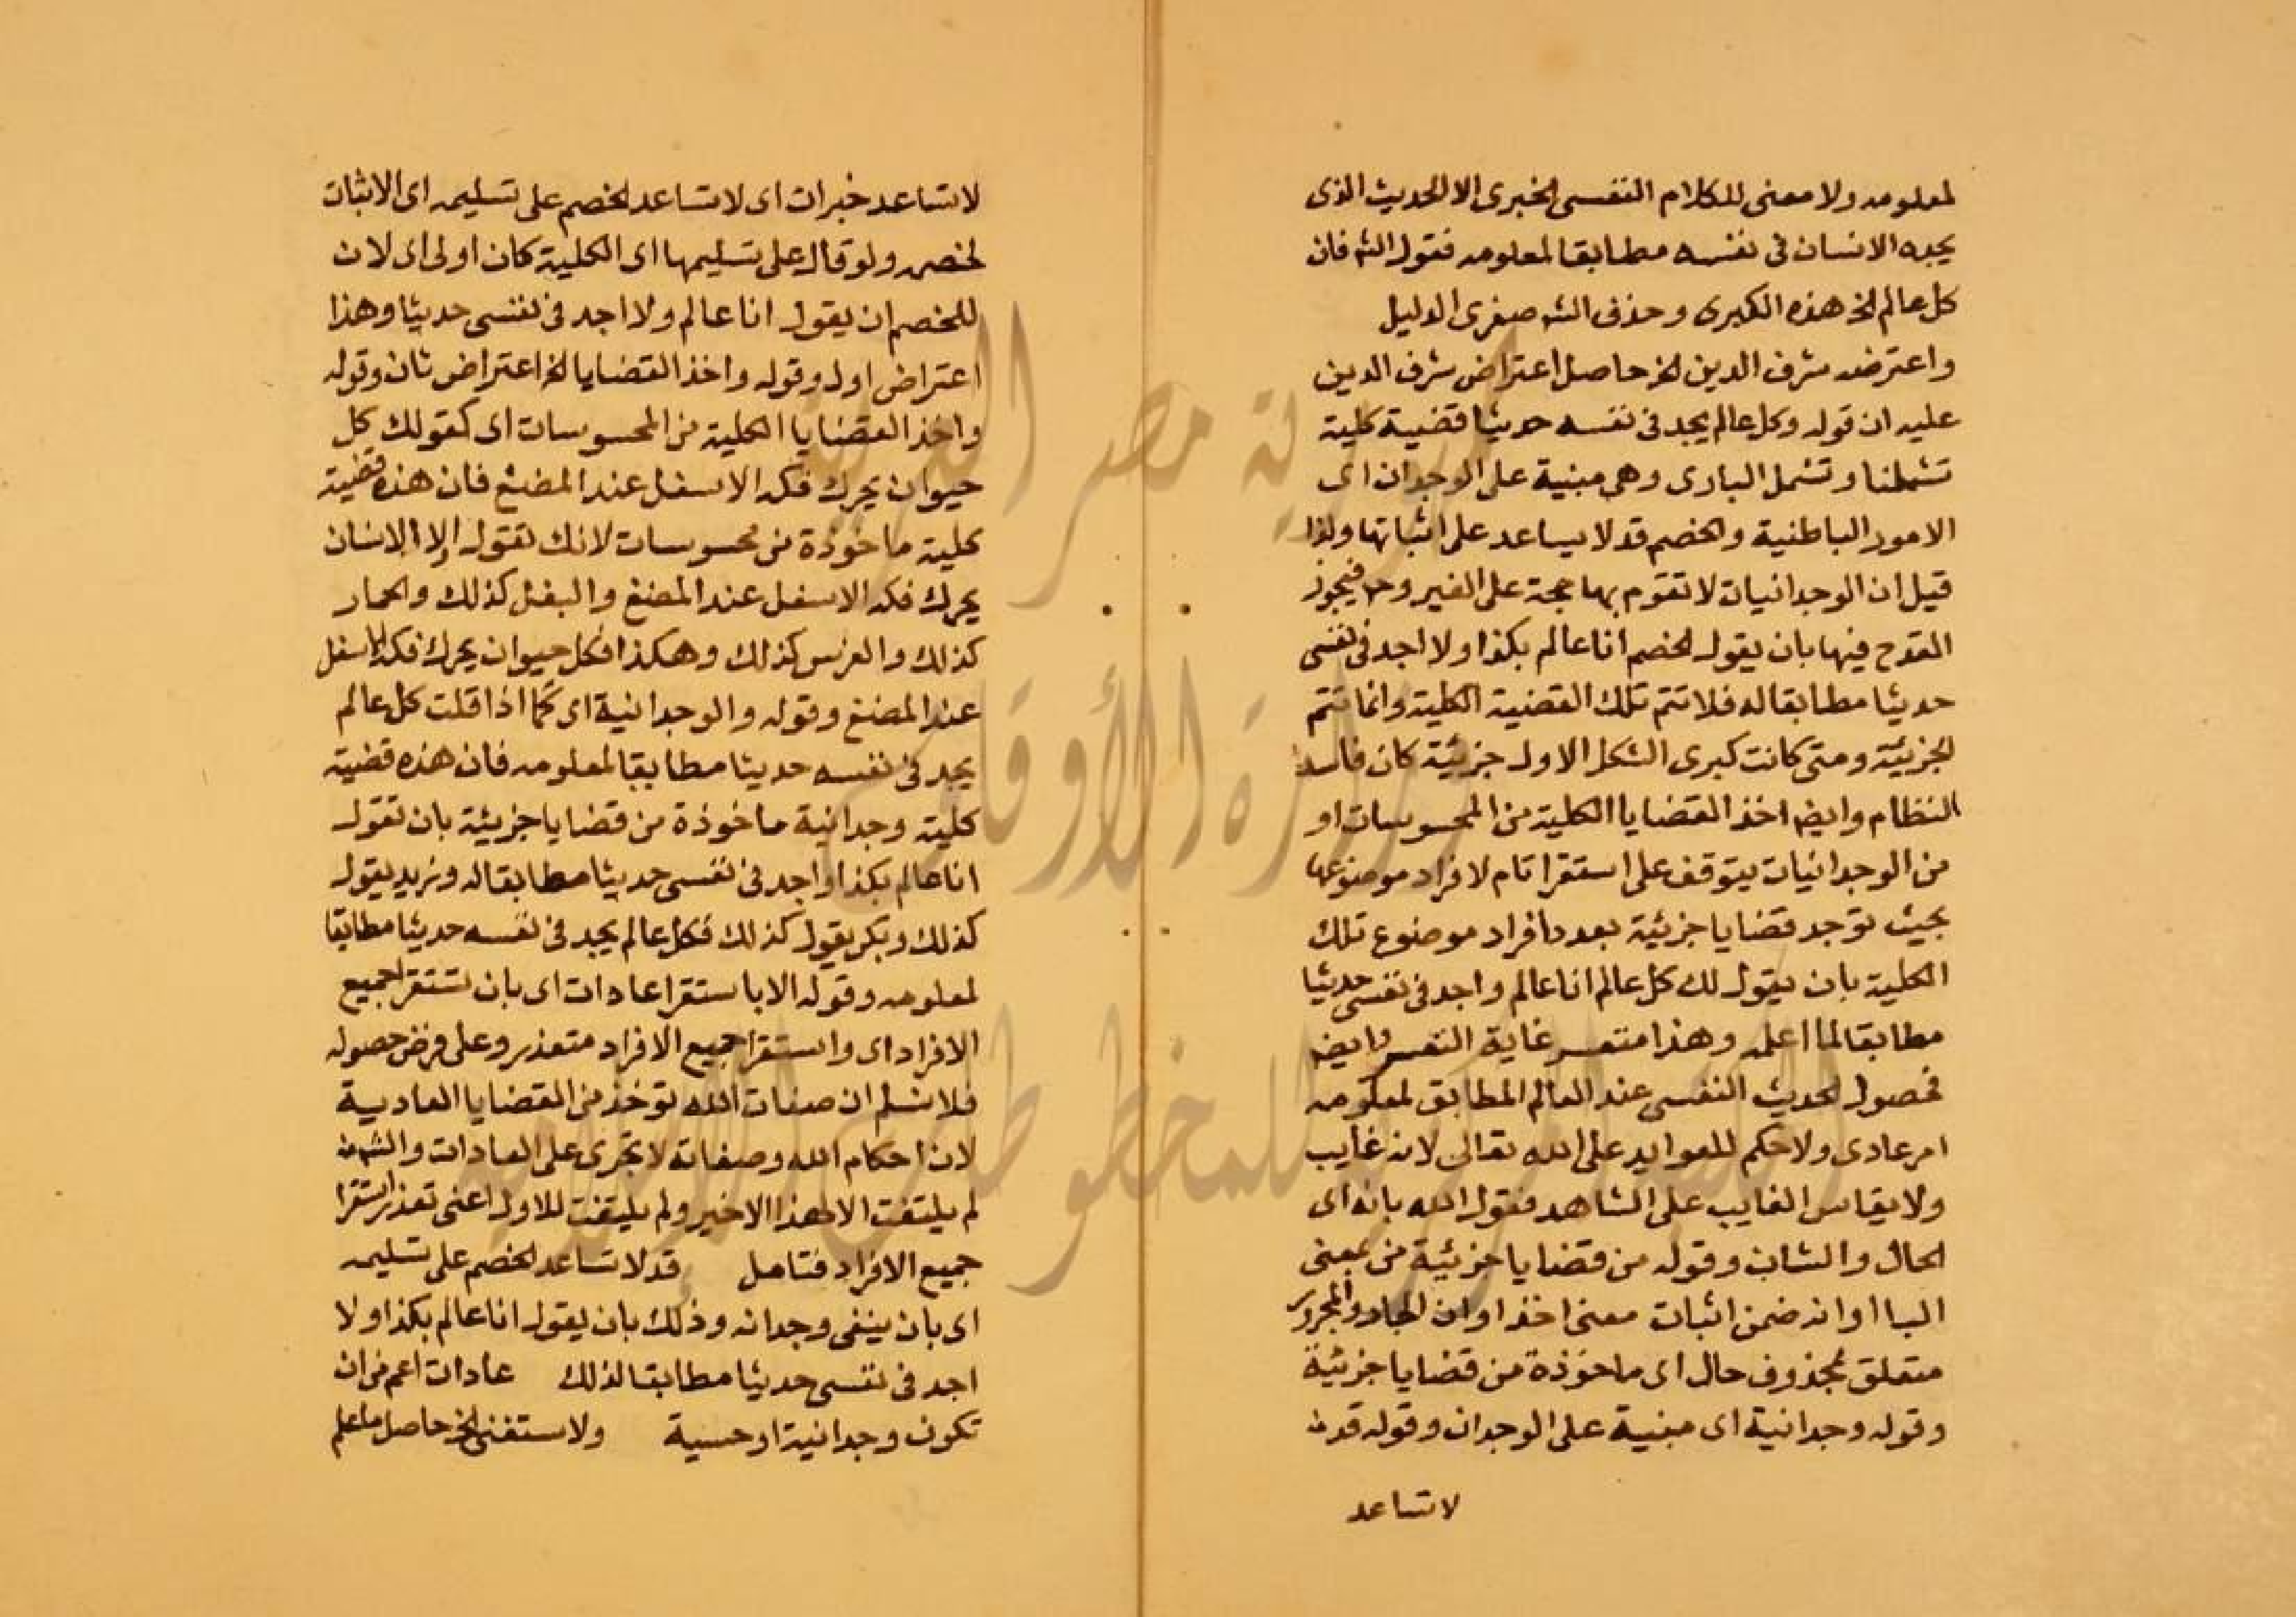 لمعلومه ولا معنى للكلام النفسى الخبرى الا الحديث الذى
يجده الانسان فى نفسه مطابقا لمعلومه فقول الشه فان
كل عالم الخ هذه الكبرى وحذف الشه صغرى الدليل
واعترضه شرف الدين الخ حاصل اعتراض شرف الدين
عليه ان قوله وكل عالم يجد فى نفسه حديثا قضية كلية
تشملنا وتشمل البارى وهى مبنية على الوجدان اى
الامور الباطنية والخصم قد لا يساعد على اثباتها ولذا
قيل ان الوجدانيات لا تقوم بها حجة على الغير وح فيجوز
القدح فيها بان يقول الخصم انا عالم بكذا ولا اجد فى نفسى
حديثا مطابقا له فلا تتم تلك القضية الكلية وانما تتم
الجزئية ومتى كانت كبرى الشكل الاول جزئية كان فاسد
النظام وايضا اخذ القضايا الكلية من المحسوسات او
من الوجدانيات يتوقف على استقرا تام لافراد موضوعها
بحيث توجد قضايا جزئية بعدد افراد موضوع تلك
الكلية بان يقول لك كل عالم انا عالم واجد فى نفسى حديثا
مطابقا لما اعلمه وهذا متعسر غاية التعسر وايضا
فحصول الحديث النفسى عند العالم المطابق لمعلومه
امر عادى ولا حكم للعوايد على الله تعالى لانه غايب
ولا يقاس الغايب على الشاهد فقول الله بانه اى
الحال والشان وقوله من قضايا جزئية من بمعنى
البا او انه ضمن اثبات معنى اخذ او ان الجار والمجرور
متعلق بمحذوف حال اى ماخوذة من قضايا جزئية
وقوله وجدانية اى مبنية على الوجدان وقوله قد
لا تساعد
لا تساعد خبران اى لا تساعد الخصم على تسليمه اى الاثبات
لخصمه ولو قال على تسليمها اى الكلية كان اولى اى لان
للخصم ان يقول انا عالم ولا اجد فى نفسى حديثا وهذا
اعتراض اول وقوله واخذ القضايا الخ اعتراض ثان وقوله
واخذ القضايا الكلية من المحسوسات اى كقولك كل
حيوان يحرك فكه الاسفل عند المضغ فان هذه قضية
كلية ماخوذة من محسوسات لانك تقول اولا الانسان
يحرك فكه الاسفل عند المضغ والبغل كذلك والحمار
كذلك والفرس كذلك وهكذا فكل حيوان يحرك فكه الاسفل
عند المضغ وقوله والوجدانية اى كما اذا قلت كل عالم
يجد فى نفسه حديثا مطابقا لمعلومه فان هذه قضية
كلية وجدانية ماخوذة من قضايا جزيئة بان تقول
انا عالم بكذا واجد فى نفسى حديثا مطابقا له وزيد يقول
كذلك وبكر يقول كذلك فكل عالم يجد فى نفسه حديثا مطابقا
لمعلومه وقوله الا باستقرا عادات اى بان تستقرا جميع
الافراد اى واستقرا جميع الافراد متعذر وعلى فرض حصوله
فلا نسلم ان صفات الله توخذ من القضايا العادية
لان احكام الله وصفاته لا تجرى على العادات والشه
لم يلتفت الا لهذا الاخير ولم يلتفت للاول اعنى تعذر استقرا
جميع الافراد فتامل قد لا تساعد الخصم على تسليمه
اى بان ينفى وجدانه وذلك بان يقول انا عالم بكذا ولا
اجد فى نفسى حديثا مطابقا لذلك عادات اعم من ان
تكون وجدانية او حسية ولا ستغنى الخ حاصل ما علم